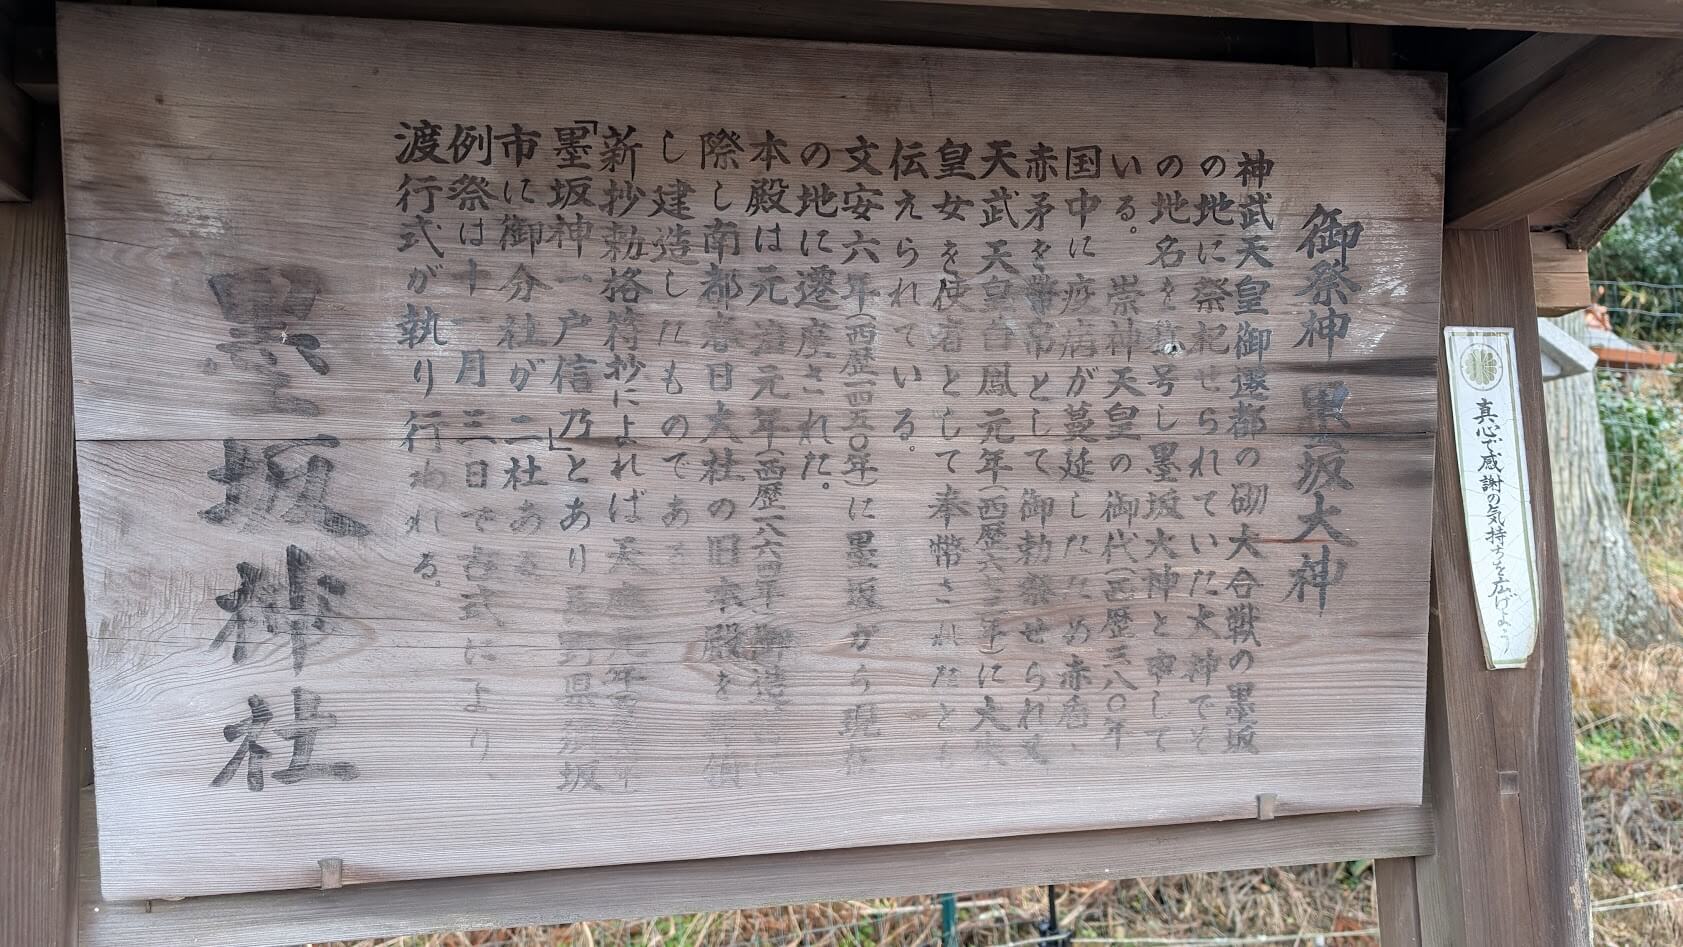 御祭神 墨坂大神
神武天皇御遷都の砌大合戦の墨坂
の地に祭祀せられていた大神でそ
の地名を号し墨坂大神と申して
いる。 崇神天皇の御代(西歴三八〇年
国中に疫病が蔓延したため赤盾、
赤矛を幣帛として御勅祭せられ
天武天皇白鳳元年(西歴六七三年)に大来
皇女を使者として奉幣されたとも
伝えられている。
文安六年(西歴一四五〇年)に墨坂から現在
の地に遷座された。
本殿は元治元年(西歴一八六四年)御造
際し南都春日大社の旧本殿を
し建造したものである
新抄勅格符抄によれば天
「墨坂神一戸信乃」とあり長野県須坂
市に御分社が二社ある
例祭は十一月三日で古式により、
渡行式が執り行われる。
墨坂神社
真心で感謝の気持ちを広げよう